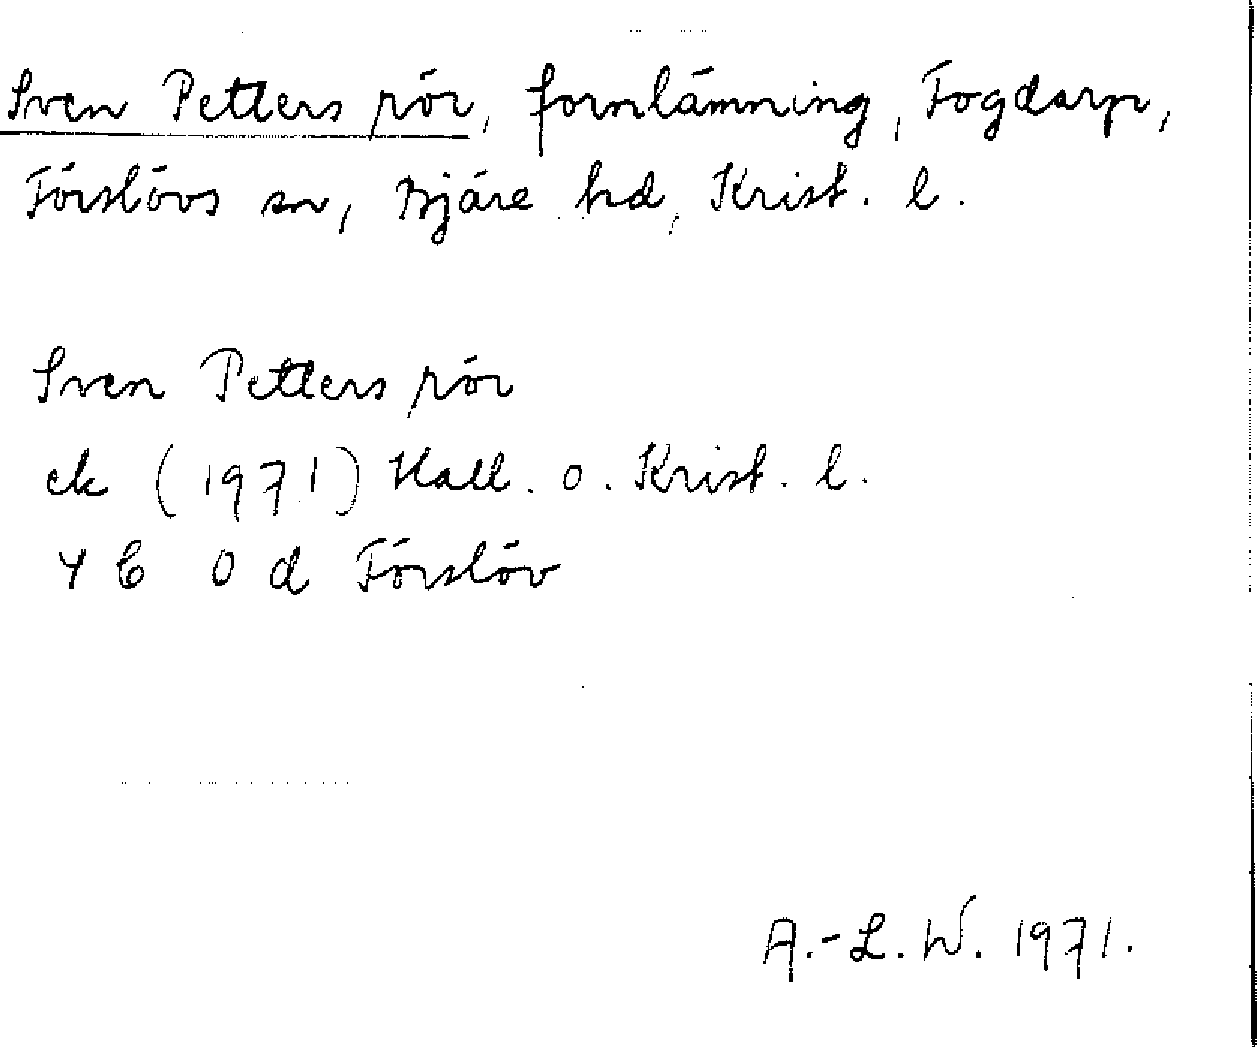 Sven Petters rör, fornlämning, Fogdarp,
Förslövs sn, Bjäre hd, Krist. l.
Sven Petters rör
ek (1971) Hall. o. Krist. l.
4 C 0 d Förslöv
A.-L. W. 1971.